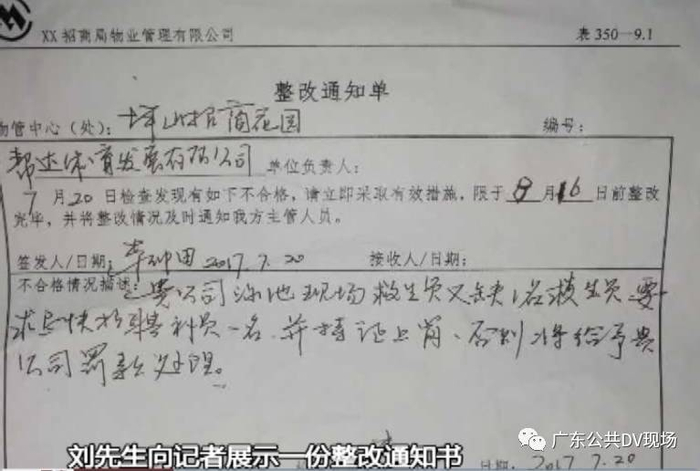 XX招商局物业管理有限公司 表350-9.1
整改通知单
物管中心(处): 坪山招商花园 编号:
帮达体育发展有限公司 单位负责人:
7月20日检查发现有如下不合格,请立即采取有效措施,限于8月16日前整改
完毕,并将整改情况及时通知我方主管人员。
签发人/日期: 2017.7.20 接收人/日期:
不合格情况描述: 贵公司泳池现场救生员又缺1名救生员,要
求尽快招聘补员一名,并持证上岗,否则将给予贵
公司罚款处理。
日期: 2017.7.20
刘先生向记者展示一份整改通知书
广东公共DV现场